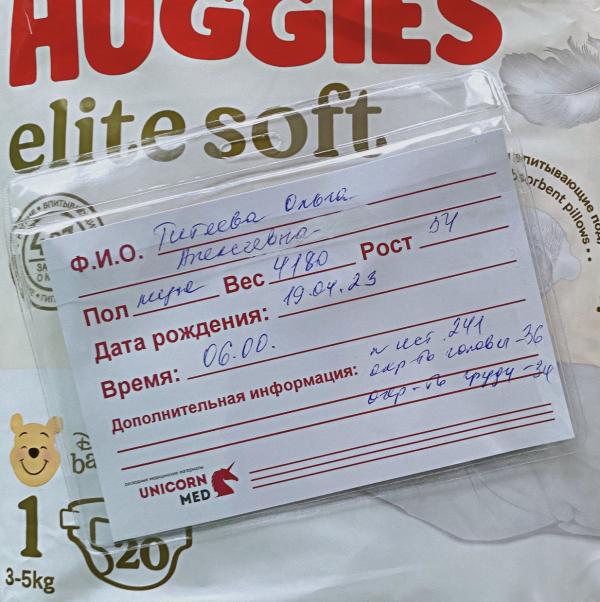 HUGGIES
elite soft
впитывающие под
absorbent pillows
Ф.И.О. Титеева Ольга
Алексеевна
Пол муж Вес 4180 Рост 54
Дата рождения: 19.04.23
Время: 06.00.
Дополнительная информация: n ист. 241
окр-ть головы -36
окр-ть груди -34
расходные медицинские материалы
UNICORN
MED
1
20
3-5kg